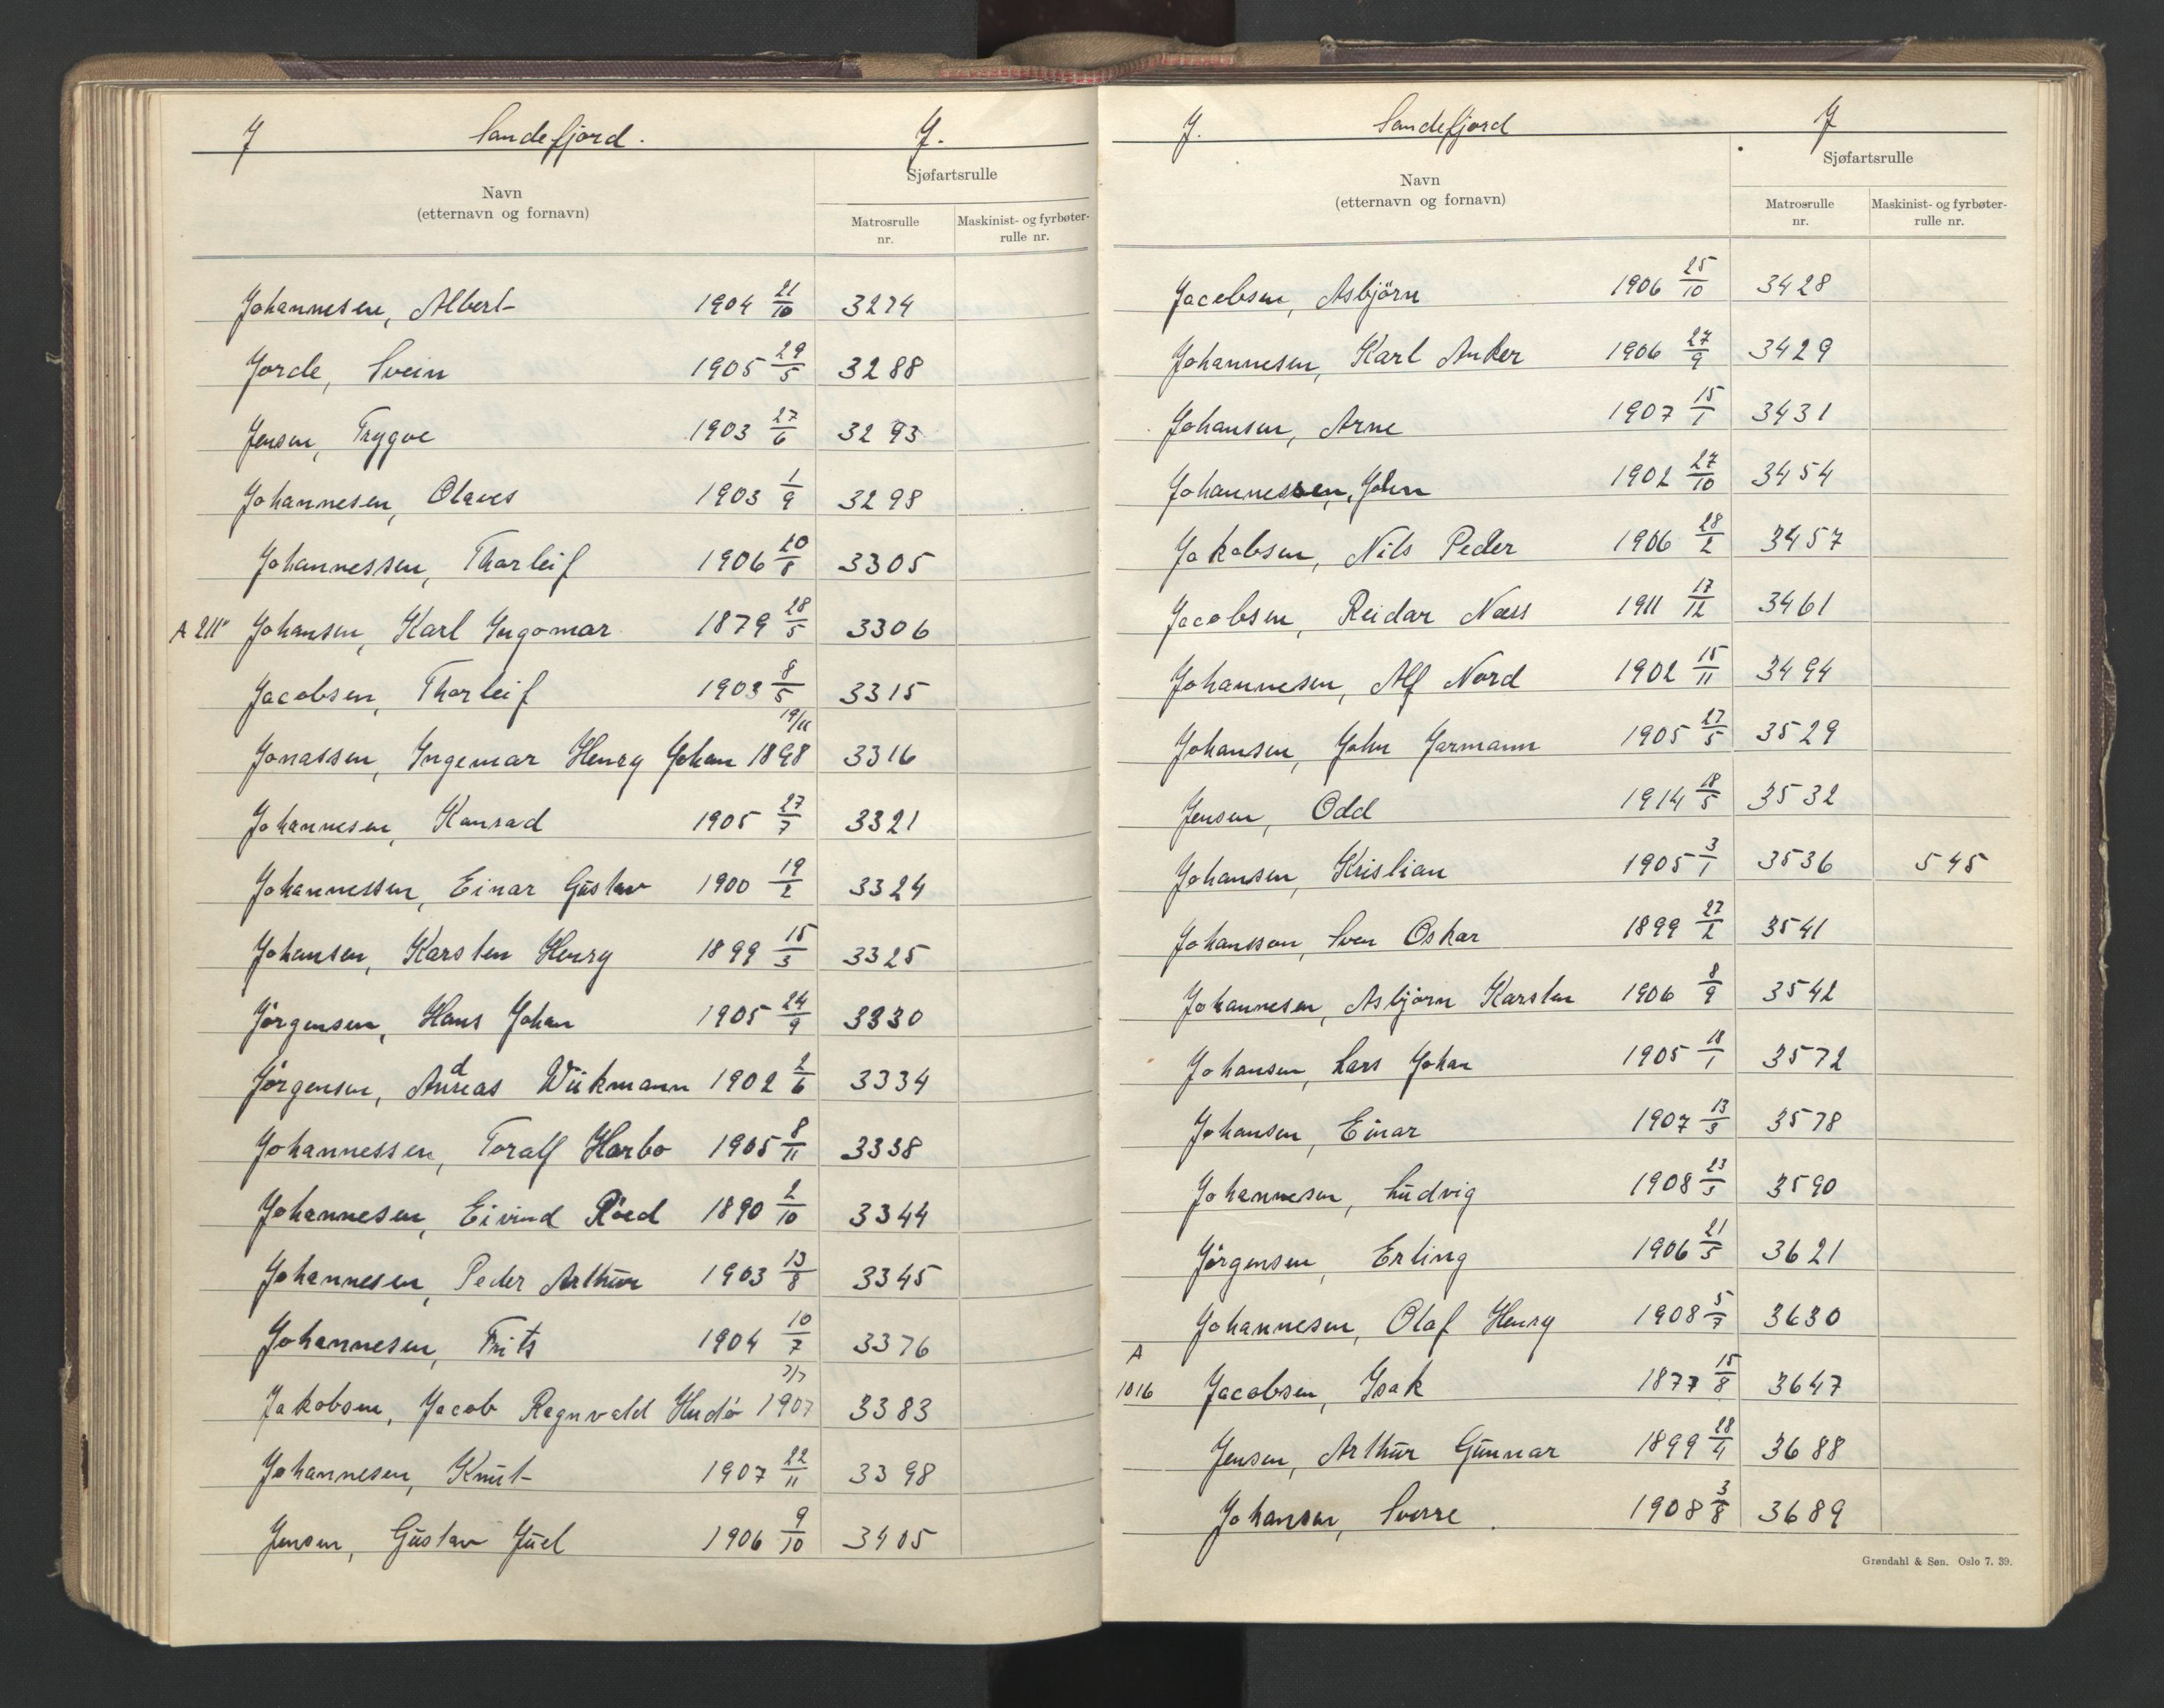 J Sandefjord. J.
Sjøfartsrulle
Navn
(etternavn og fornavn)
Matrosrulle nr. Maskinist- og fyrbøter-rulle nr.
Johannesen, Albert 1904 21/10 3274
Jorde, Svein 1905 29/5 3288
Jensen, Trygve 1903 27/6 3293
Johannesen, Olaves 1903 1/9 3298
Johannessen, Thorleif 1906 20/8 3305
A 211 Johansen, Karl Ingomar 1879 28/5 3306
Jacobsen, Thorleif 1903 8/5 3315
Jonassen, Ingemar Henry Johan 1898 19/11 3316
Johannesen, Konrad 1905 27/7 3321
Johannessen, Einar Gustav 1900 19/2 3324
Johansen, Karsten Henry 1899 15/3 3325
Jørgensen, Hans Johan 1905 24/9 3330
Jørgensen, Andreas Wiikmann 1902 2/6 3334
Johannessen, Toralf Harbo 1905 8/11 3338
Johannesen, Eivind Röed 1890 2/10 3344
Johannesen, Peder Arthur 1903 13/8 3345
Johannesen, Frits 1904 10/7 3376
Jakobsen, Jacob Ragnvald Hudö 1907 3383
Johannesen, Knut 1907 22/11 3398
Jensen, Gustav Juel 1906 9/10 3405
J. Sandefjord J
Sjøfartsrulle
Navn
(etternavn og fornavn)
Matrosrulle nr. Maskinist- og fyrbøter-rulle nr.
Jacobsen, Asbjörn 1906 25/10 3428
Johannesen, Karl Anker 1906 27/9 3429
Johansen, Arne 1907 15/1 3431
Johannessen, John 1902 27/10 3454
Jakobsen, Nils Peder 1906 28/2 3457
Jacobsen, Reidar Næss 1911 17/12 3461
Johannesen, Alf Nord 1902 15/11 3494
Johansen, John Jarmann 1905 27/5 3529
Jensen, Odd 1914 18/5 3532
Johansen, Kristian 1905 3/1 3536 545
Johansson, Sven Oskar 1899 27/2 3541
Johannesen, Asbjørn Karsten 1906 8/9 3542
Johansen, Lars Johan 1905 18/1 3572
Johansen, Einar 1907 13/3 3578
Johannesen, Ludvig 1908 23/3 3590
Jørgensen, Erling 1906 21/5 3621
Johannesen, Olaf Henry 1908 5/7 3630
A 1016 Jacobsen, Isak 1877 15/8 3647
Jensen, Arthur Gunnar 1899 28/4 3688
Johansen, Sverre 1908 3/8 3689
Grøndahl & Søn. Oslo 7. 39.